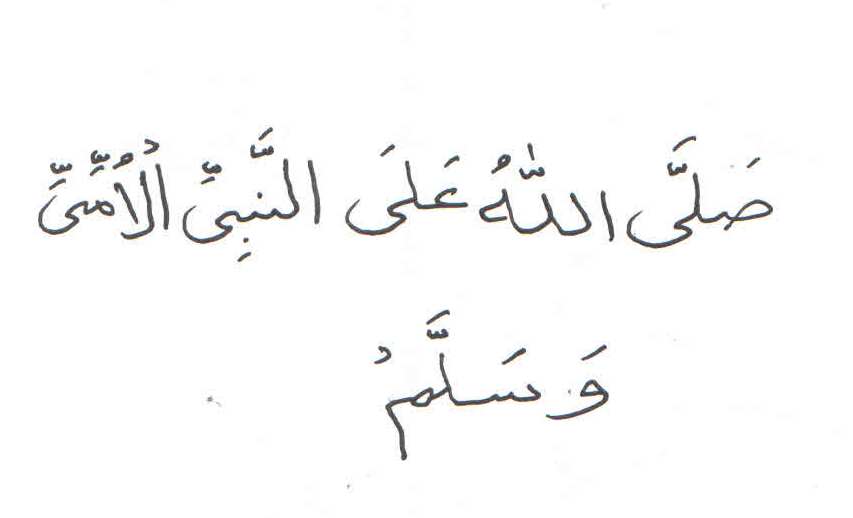 صَلَّى اللّٰهُ عَلَى النَّبِىِّ الْاُمِّىِّ
وَسَلَّمْ